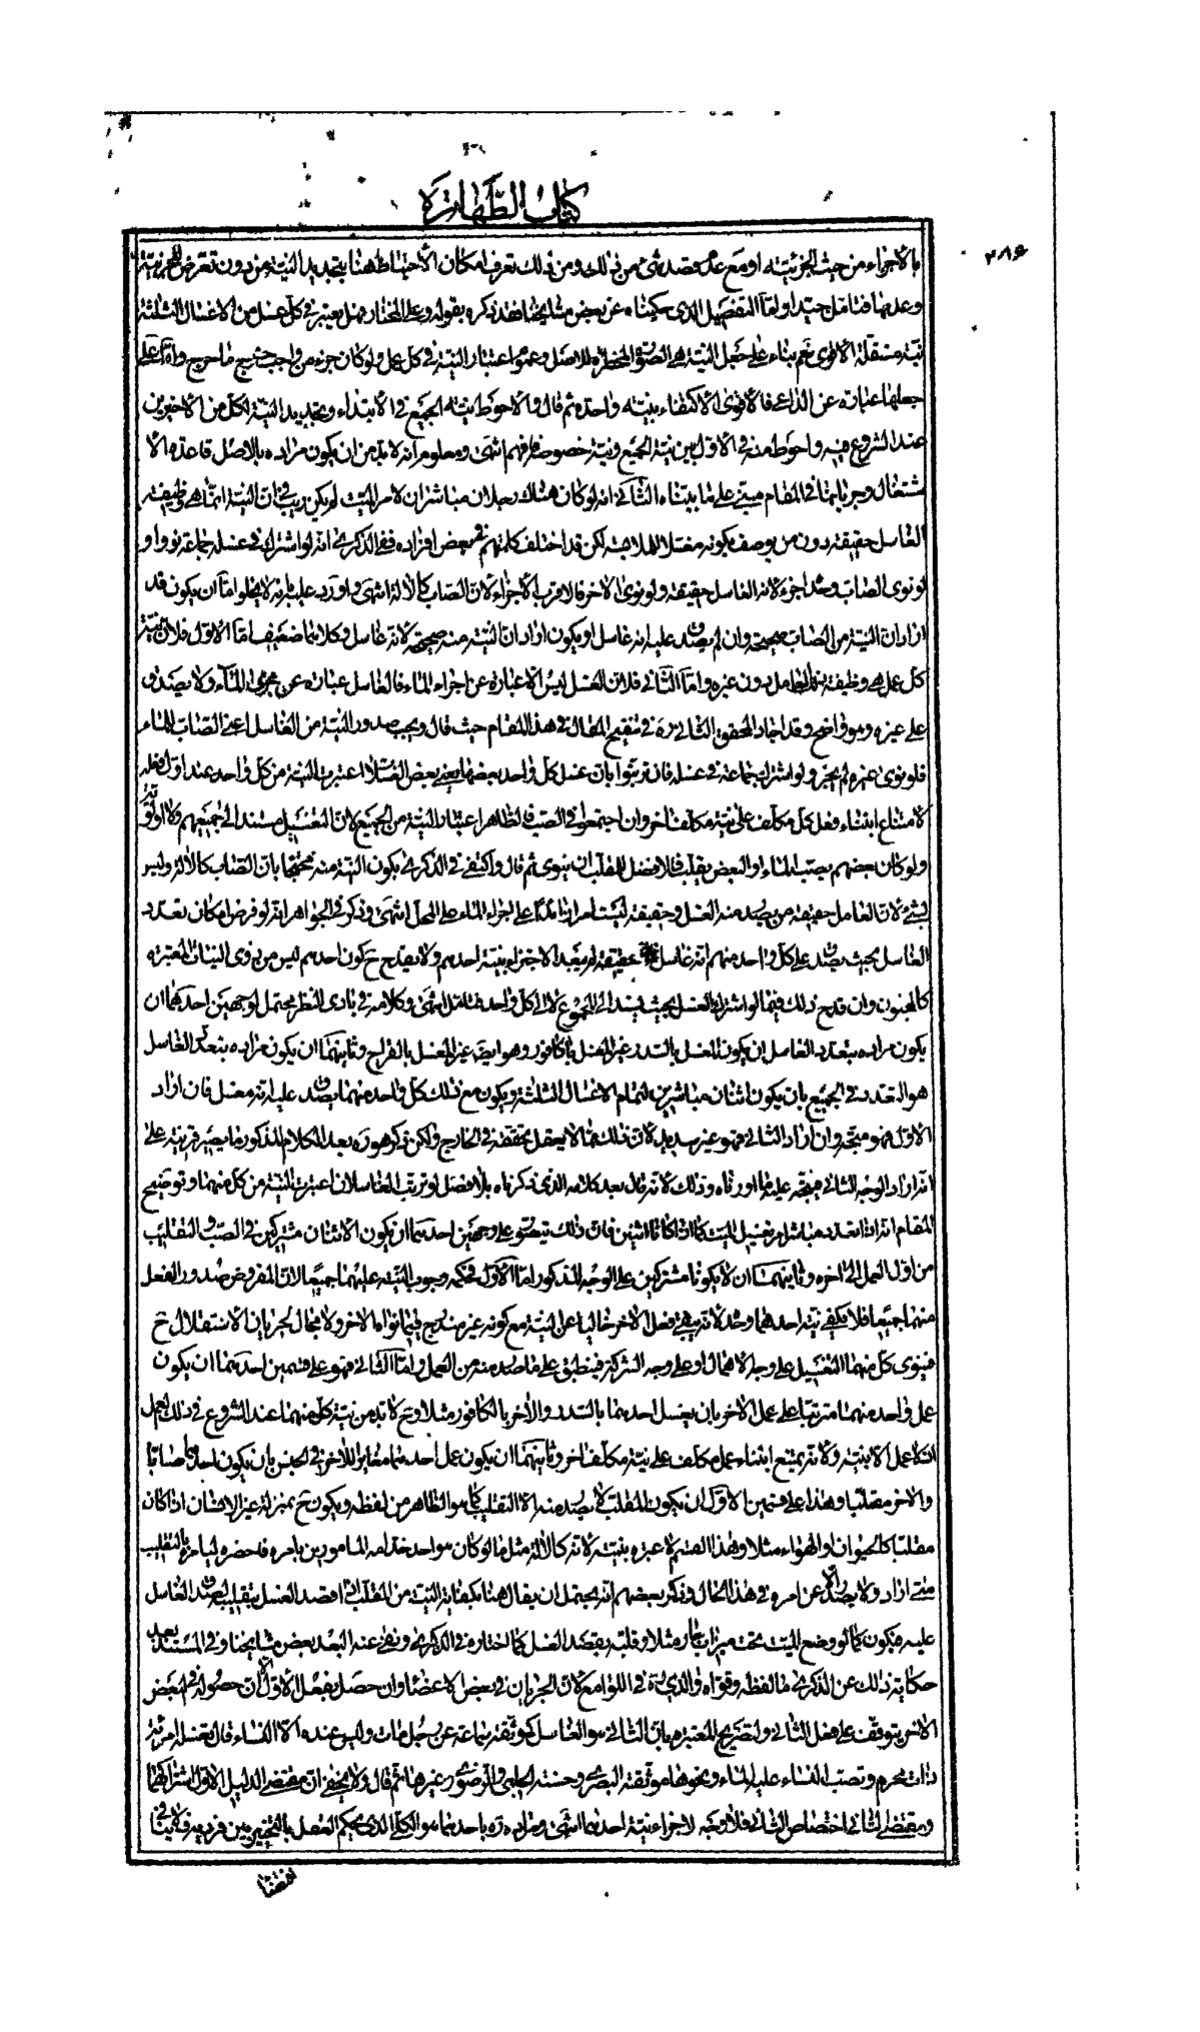 كتاب الطهارة
٢٨٦
بالأجزاء من حيث الجزئية او مع عدم قصد شئ من ذلك ومن ذلك تعرف امكان الأحتياط هنا بتجديد النية من دون تعرض للجزئية
وعدمها فتامل جيدا وامّا التفصيل الذى حكيناه عن بعض مشايخنا فقد ذكره بقوله وعلى المختار فهل يعتبر فى كل غسل من الاغسال الثلثة
نية مستقلة الأقوى نعم بناء على جعل النية هى الصورة المخطرة للاصل وعموم اعتبار النية فى كل عمل ولو كان جزء من واجب خرج ما خرج وامّا على
جعلها عبارة عن الداعى فالأقوى الأكتفاء بنية واحدة ثم قال والأحوط نية الجميع فى الأبتداء وتجديد النية لكل من الأخيرين
عند الشروع فيه واحوط منه فى الأول بين نية الجميع ونية خصوصه فافهم انتهى ومعلوم انه لا بد من ان يكون مراده بالاصل قاعدة الا
شتغال وجريانها فى المقام مبنى على ما بيناه الثانى انه لو كان هناك رجلان مباشران لامر الميت لم يكن ريب فى ان النية انما هى وظيفة
الغاسل حقيقة دون من يوصف بكونه مغسلا للملابسة لكن قد اختلف كلمتهم فى بعض افراده ففى الذكرى انه لو اشترك فى غسله جماعة نووا و
لو نوى الصاب وحده اجزء لانه الغاسل حقيقة ولو نوى الأخر فالاقرب الأجزاء لان الصاب كالألة انتهى واورد عليه بانه لا يخلو امّا ان يكون قد
اراد ان النية من الصاب صحيحة وان لم يصدق عليه انه غاسل او يكون اراد ان النية منه صحيحة لانه غاسل وكلاهما ضعيف امّا الاول فلان نية
كل عمل هى وظيفة العامل دون غيره وامّا الثانى فلان الغسل ليس الا عبارة عن اجراء الماء فالغاسل عبارة عن مجرى الماء ولا يصدق
على غيره وهو واضح وقد اجاد المحقق الثانى ره فى تنقيح المقال فى هذا المقام حيث قال ويجب صدور النية من الغاسل اعنى الصاب للماء
فلو نوى غيره لم يجز ولو اشترك جماعة فى غسله فان ترتبوا بان غسل كل واحد بعضها يعنى بعض الغسلات اعتبرت النية من كل واحد عند اول فعله
لامتناع ابتناء فعل كل مكلف على نية مكلف اخر وان اجتمعوا فى الصب فالظاهر اعتبار النية من الجميع لان التغسيل مستند الى جميعهم ولا اولوية
ولو كان بعضهم يصب الماء والبعض يقلب فالافضل للمقلب ان ينوى ثم قال واكتفى فى الذكرى بكون النية منه محتجا بان الصاب كالألة وليس
بشئ لان الغاسل حقيقة من يصدر منه الغسل وحقيقة ليست امرا زائدا على اجراء الماء على المحل انتهى وذكر فى الجواهر انه لو فرض امكان تعدد
الغاسل بحيث يصدق على كل واحد منهم انه غاسل حقيقة لم يبعد الاجتزاء بنية احدهم ولا يقدح ح كون احدهم ليس من ذوى النيات المعتبرة
كالمجنون وان قدح ذلك فيما لو اشتركوا بالغسل بحيث يسند الى المجموع لا الى كل واحد فتامل انتهى وكلامه فى بادى النظر محتمل لوجهين احدهما ان
يكون مراده بتعدد الغاسل ان يكون الغسل بالسدر غير الغسل بالكافور وهو ايضا غير الغسل بالقراح وثانيهما ان يكون مراده بتعدد الغاسل
هو التعدد فى الجميع بان يكون اثنان مباشرين لتمام الاغسال الثلثة ويكون مع ذلك كل واحد منهما يصدق عليه انه مغسل فان اراد
الاول فهو متجه وان اراد الثانى فهو غير سديد لان ذلك مما لا يعقل تحققه فى الخارج ولكن ذكر هو ره بعد الكلام المذكور ما يصير قرينة على
انه اراد الوجه الثانى فيتجه عليه ما اوردناه وذلك لانه قال بعد كلامه الذى ذكرناه بلا فصل لو ترتب الغاسلان اعتبرت النية من كل منهما وتوضيح
المقام انه اذا تعدد مباشر امر تغسيل الميت كما اذا كانا اثنين فان ذلك يتصور على وجهين احدهما ان يكون الأثنان مشتركين فى الصب والتقليب
من اول العمل الى اخره وثانيهما ان لا يكونا مشتركين على الوجه المذكور امّا الأول فحكمه وجوب النية عليهما جميعا لان المفروض صدور الفعل
منهما جميعا فلا يكفى نية احدهما وحده لانه يبقى فعل الأخر خاليا عن النية مع كونه غير مندرج فيما نواه الاخر ولا مجال لجريان الأستقلال ح
فينوى كل منهما التغسيل على وجه الاهمال او على وجه الشركة فينطبق على ما صدر منه من العمل وامّا الثانى فهو على قسمين احدهما ان يكون
عمل واحد منهما مترتبا على عمل الأخر بان يغسل احدهما بالسدر والأخر بالكافور مثلا وح لا بد من نية كل منهما عند الشروع فى ذلك العمل
اذ لا عمل الا بنية ولانه يمتنع ابتناء عمل مكلف على نية مكلف اخر وثانيهما ان يكون عمل احدهما مغايرا للأخر فى الجنس بان يكون احدهما صابا
والاخر مقلبا وهذا على قسمين الأول ان يكون المقلب لا يصدر منه الا التقليب كما هو الظاهر من لفظه ويكون ح بمنزلة غير الإنسان اذا كان
مقلبا كالحيوان او الهواء مثلا وهذا القسم لا عبرة بنيته لانه كالألة مثل ما لو كان هو احد خدامه المأمورين بامره فحضره ليامره بالتقليب
متى اراد ولا يصدر الا عن امره فى هذا الحال وذكر بعضهم انه يحتمل ان يقال هنا بكفاية النية من المقلب اذا قصد الغسل بتقليبه لصدق الغاسل
عليه فيكون كما لو وضع الميت تحت ميزاب مثلا وقلبه بقصد الغسل كما اختاره فى الذكرى ونفى عنه البعد بعض مشايخنا وفى المستند بعد
حكاية ذلك عن الذكرى ما لفظه وقواه والدى ره فى اللوامع لان الجريان فى بعض الاعضاء وان حصل بفعل الأول الا ان حصوله فى البعض
الاخر يتوقف على فعل الثانى ولتصريح المعتبرة بان الثانى هو الغاسل كموثقة سماعة عن رجل مات وليس عنده الا النساء قال تغسله امرئة
ذات محرم وتصب النساء عليه الماء ونحوها موثقة البصرى وحسنة الحلبى والرضوى وغيرها ثم قال ولا يخفى ان مقتضى الدليل الاول اشتراكهما
ومقتضى الثانى اختصاص الثانى فلا وجه لاجزاء نية احدهما انتهى ومراده ره باحدهما هو الكلى الذى يحكم العقل بالتخيير بين فرديه فلا ينافى